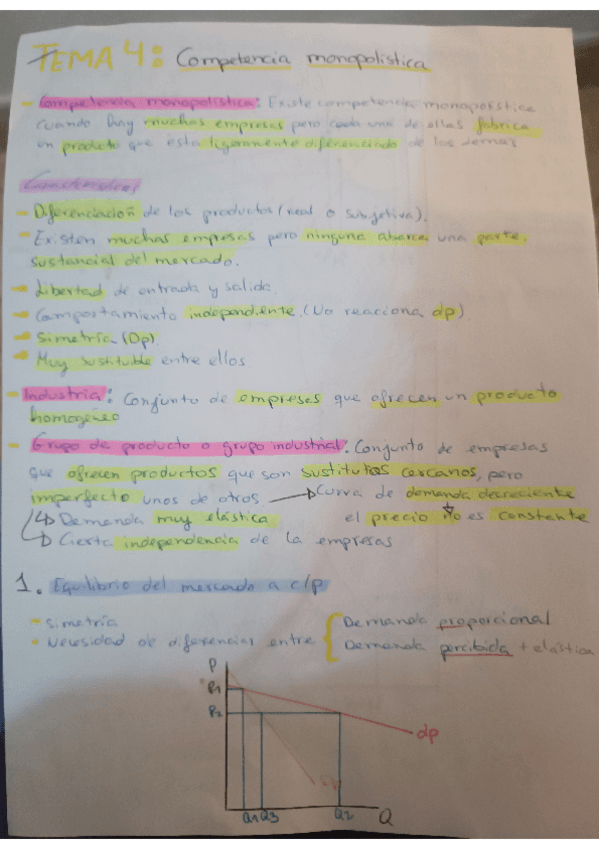 TEMA 4: Competencia monopolistica
- Competencia monopolística: Existe competencia monopolística
cuando hay muchas empresas pero cada una de ellas fabrica
un producto que esta ligeramente diferenciado de los demas
Características
- Diferenciación de los productos (real o subjetiva).
- Existen muchas empresas pero ninguna abarca una parte
sustancial del mercado.
- Libertad de entrada y salida.
- Comportamiento independiente. (No reaciona dp)
- Simetría (Dp)
- Muy sustituible entre ellos
- Industria: Conjunto de empresas que ofrecen un producto
homogéneo
- Grupo de producto o grupo industrial: Conjunto de empresas
que ofrecen productos que son sustitutos cercanos, pero
imperfecto unos de otros → Curva de demanda decreciente
↳ Demanda muy elástica el precio no es constante
↳ Cierta independencia de la empresas
1. Equilibrio del mercado a c/p
- Simetría
- Necesidad de diferenciar entre { Demanda proporcional
Demanda percibida + elástica
P
P1
P2
dp
Q1 Q3 Q2 Q